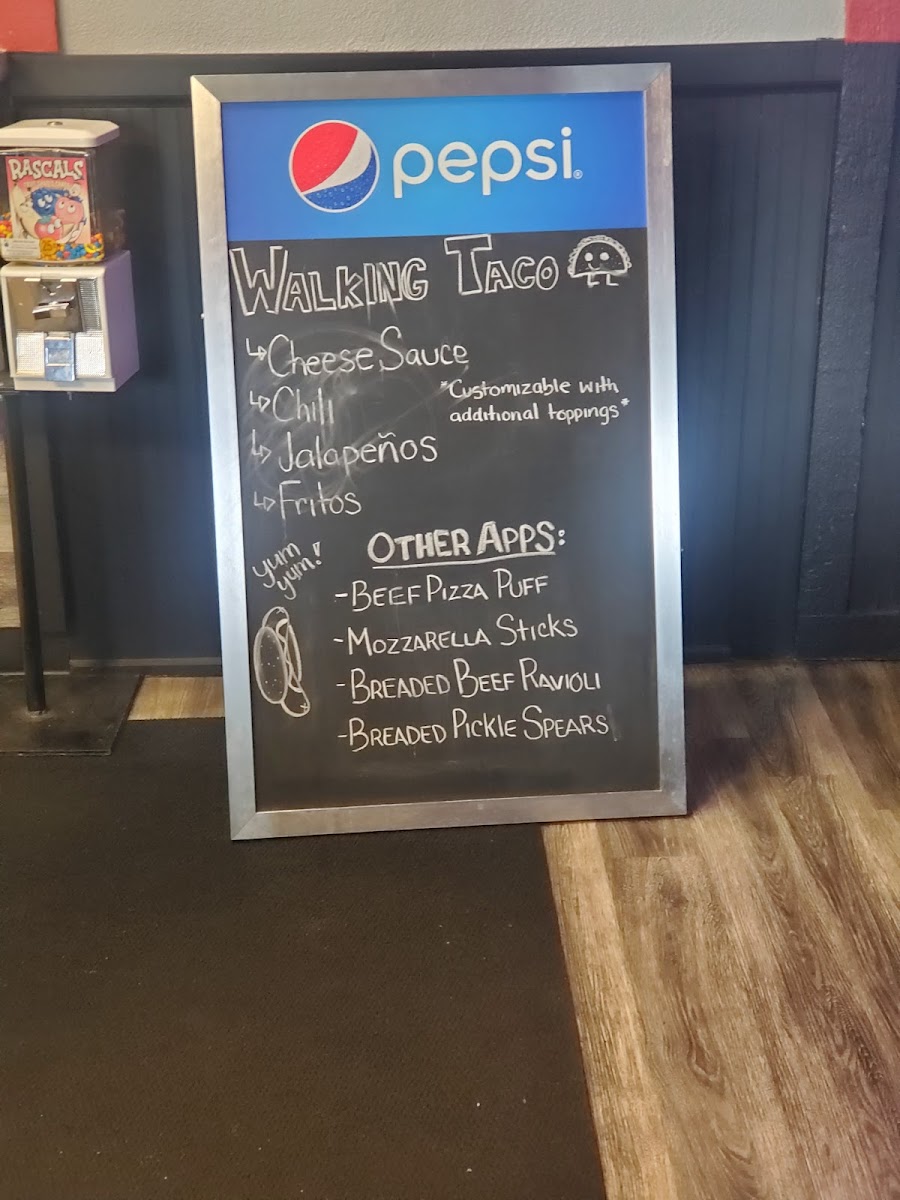 pepsi®
RASCALS
WALKING TACO
↳Cheese Sauce
↳Chili
↳Jalapeños
↳Fritos
*Customizable with
additional toppings*
yum
yum!
OTHER APPS:
-BEEF PIZZA PUFF
-MOZZARELLA STICKS
-BREADED BEEF RAVIOLI
-BREADED PICKLE SPEARS